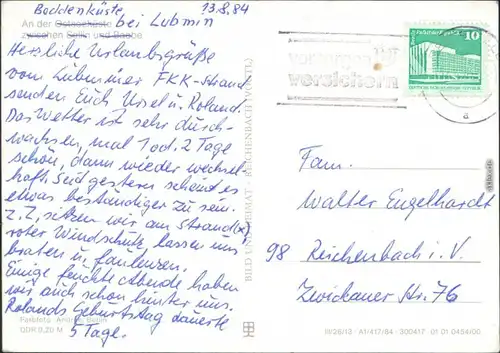 Boddenküste, 13.8.84
An der Ostseeküste bei Lubmin
zwischen Sellin und Baabe
Herzliche Urlaubsgrüße
vom Lubminer FKK-Strand
senden Euch Ursel u. Roland.
Das Wetter ist sehr durch-
wachsen, mal 1 od. 2 Tage
schön, dann wieder wechsel-
haft. Seit gestern scheint es
etwas beständiger zu sein.
z. Z. setzen wir am Strand (x)
roter Windschutz, lassen uns
braten u. faulenzen.
Einige feuchte Abende haben
wir auch schon hinter uns.
Rolands Geburtstag dauerte
5 Tage.
Farbfoto: Berlin
DDR 0,20 M
BILD UND HEIMAT REICHENBACH (VOGTL)
versichern
10
a
Fam.
Walter Engelhardt
98 Reichenbach i. V.
Zwickauer Str. 76
III/26/13 A1/417/84 300417 01 01 0454/00